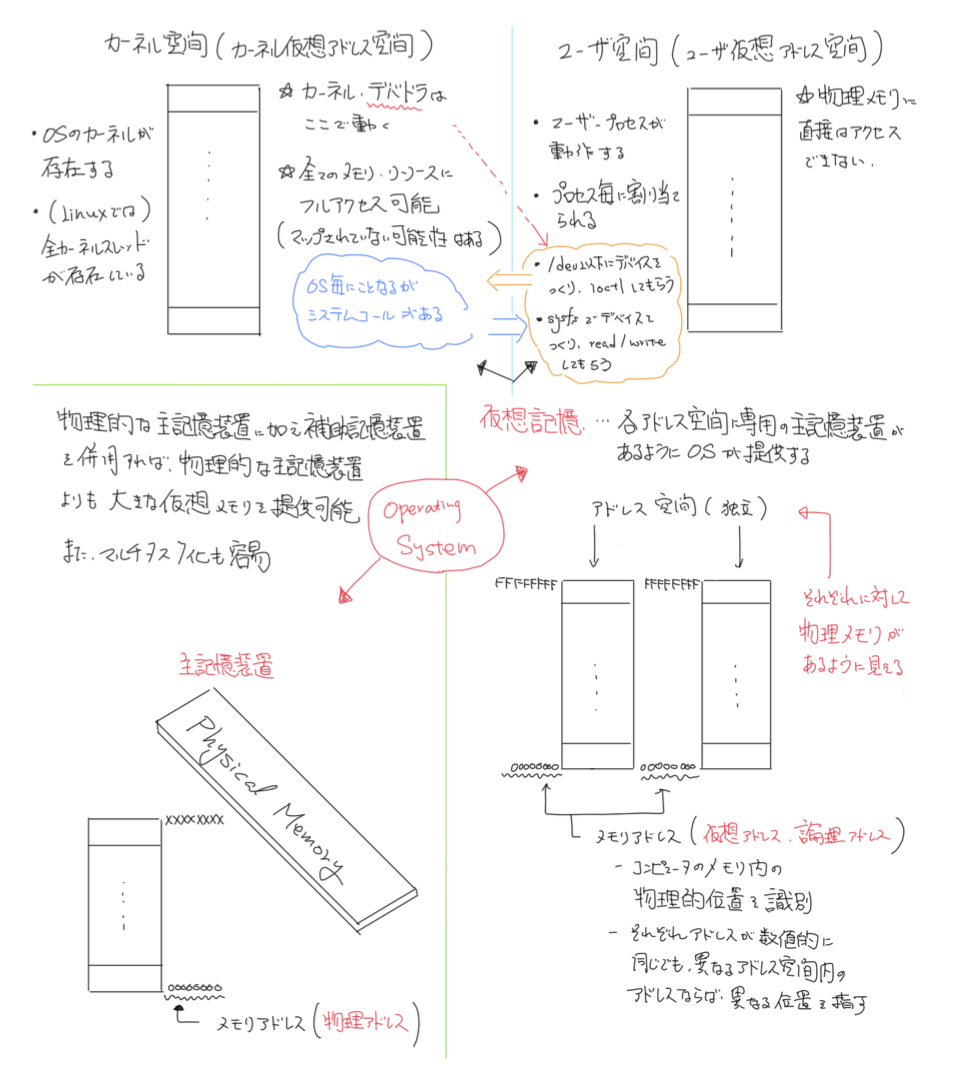 カーネル空間(カーネル仮想アドレス空間)
・OSのカーネルが
存在する
・(Linuxでは)
全カーネルスレッド
が存在している
☆ カーネル・デバドラは
ここで動く
☆ 全てのメモリ・リソースに
フルアクセス可能
(マップされていない可能性はある)
OS毎にことなるが
システムコールがある
ユーザ空間(ユーザ仮想アドレス空間)
・ユーザープロセスが
動作する
・プロセス毎に割り当て
られる
・/dev以下にデバイスを
つくり、ioctlしてもらう
・sysfsでデバイスを
つくり、read/write
してもらう
☆物理メモリに
直接はアクセス
できない.
物理的な主記憶装置に加え補助記憶装置
を併用すれば、物理的な主記憶装置
よりも大きな仮想メモリを提供可能
また、マルチタスク化も容易
Operating
System
仮想記憶 … 各アドレス空間に専用の主記憶装置が
あるようにOSが提供する
アドレス空間(独立)
FFFFFFFF
FFFFFFFF
それぞれに対して
物理メモリが
あるように見える
00000000
00000000
メモリアドレス(仮想アドレス、論理アドレス)
- コンピュータのメモリ内の
物理的位置を識別
- それぞれアドレスが数値的に
同じでも、異なるアドレス空間内の
アドレスならば、異なる位置を指す
主記憶装置
Physical Memory
XXXXXXXX
00000000
メモリアドレス(物理アドレス)